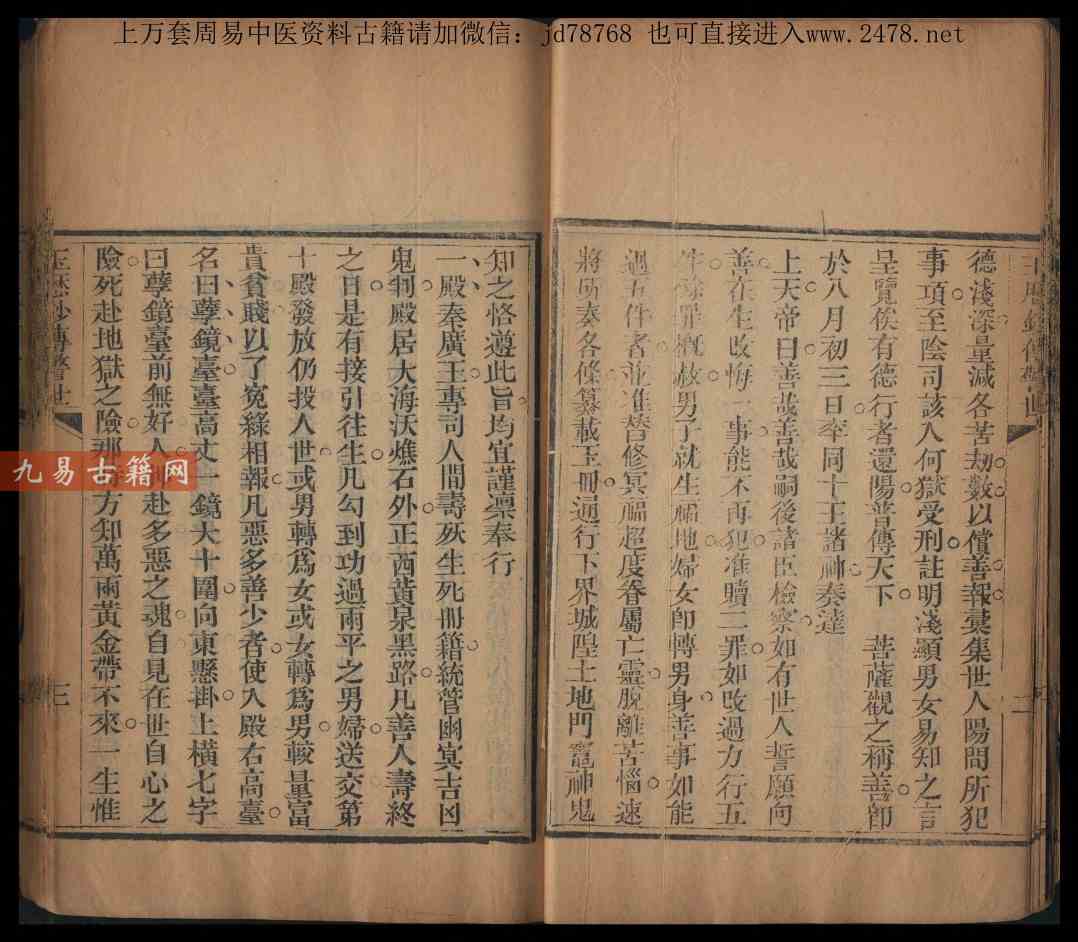 上万套周易中医资料古籍请加微信：jd78768 也可直接进入www.2478.net
德淺深量減各苦劫數以償善報彙集世人陽間所犯
事項至陰司該入何獄受刑註明淺顯男女易知之言
呈覽俟有德行者還陽普傳天下 菩薩觀之稱善卽
於八月初三日率同十王諸神奏達
上天帝曰善哉善哉嗣後諸臣檢察如有世人誓願向
善在生改悔一事能不再犯准贖二罪如改過力行五
件餘罪槪赦男子就生福地婦女卽轉男身善事如能
過五件者並准替修冥福超度眷屬亡靈脫離苦惱速
將所奏各條纂載玉冊通行下界城隍土地門竈神鬼
知之恪遵此旨均宜謹凛奉行
一殿秦廣王專司人間壽殀生死冊籍統管幽冥吉凶
鬼判殿居大海沃燋石外正西黃泉黑路凡善人壽終
之日是有接引往生凡勾到功過兩平之男婦送交第
十殿發放仍投人世或男轉爲女或女轉爲男較量富
貴貧賤以了寃緣相報凡惡多善少者使入殿右高臺
名曰孽鏡臺臺高丈一鏡大十圍向東懸掛上橫七字
曰孽鏡臺前無好人赴多惡之魂自見在世自心之
險死赴地獄之險那方知萬兩黃金帶不來一生惟
玉歷鈔傳警世
三
九易古籍网